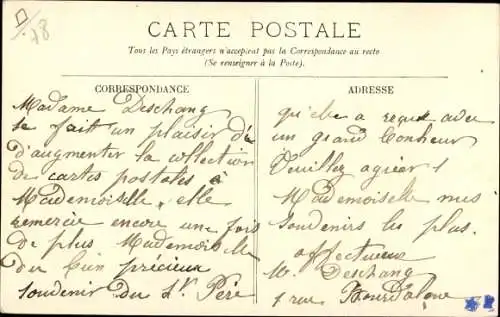 78
CARTE POSTALE
Tous les Pays étrangers n'acceptent pas la Correspondance au recto
(Se renseigner à la Poste).
CORRESPONDANCE
Madame Deschang
se fait un plaisir
d'augmenter la collection
de cartes postales à
Mademoiselle, elle
remercie encore une fois
de plus Mademoiselle
du bien précieux
souvenir du St Père
ADRESSE
qu'elle a reçut avec
un grand bonheur
Veuillez agréer
Mademoiselle mes
souvenirs les plus
affectueux
M. Deschang
1 rue Bourdaloue